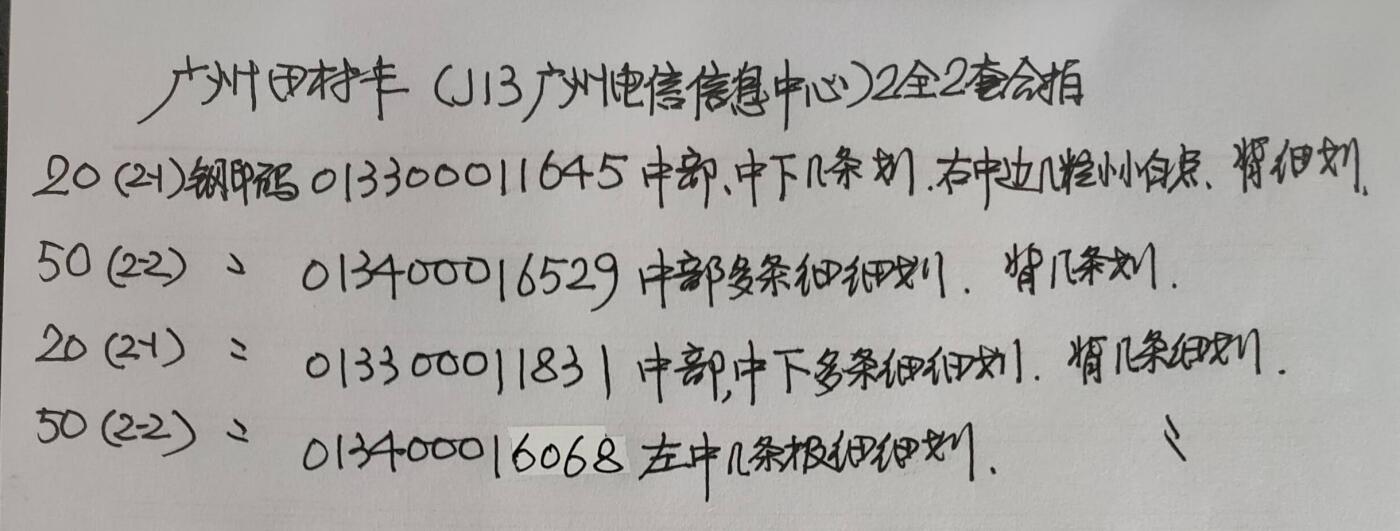 广州田村卡(J13广州电信信息中心)2全2套合拍
20(2-1)钢印码013300011645中部、中下几条划.右中边几粒小小白点、背细划.
50(2-2) 〃 013400016529中部多条细细划.背几条划.
20(2-1) 〃 013300011831中部,中下多条细细划.背几条细划.
50(2-2) 〃 013400016068左中几条极细细划. 〃